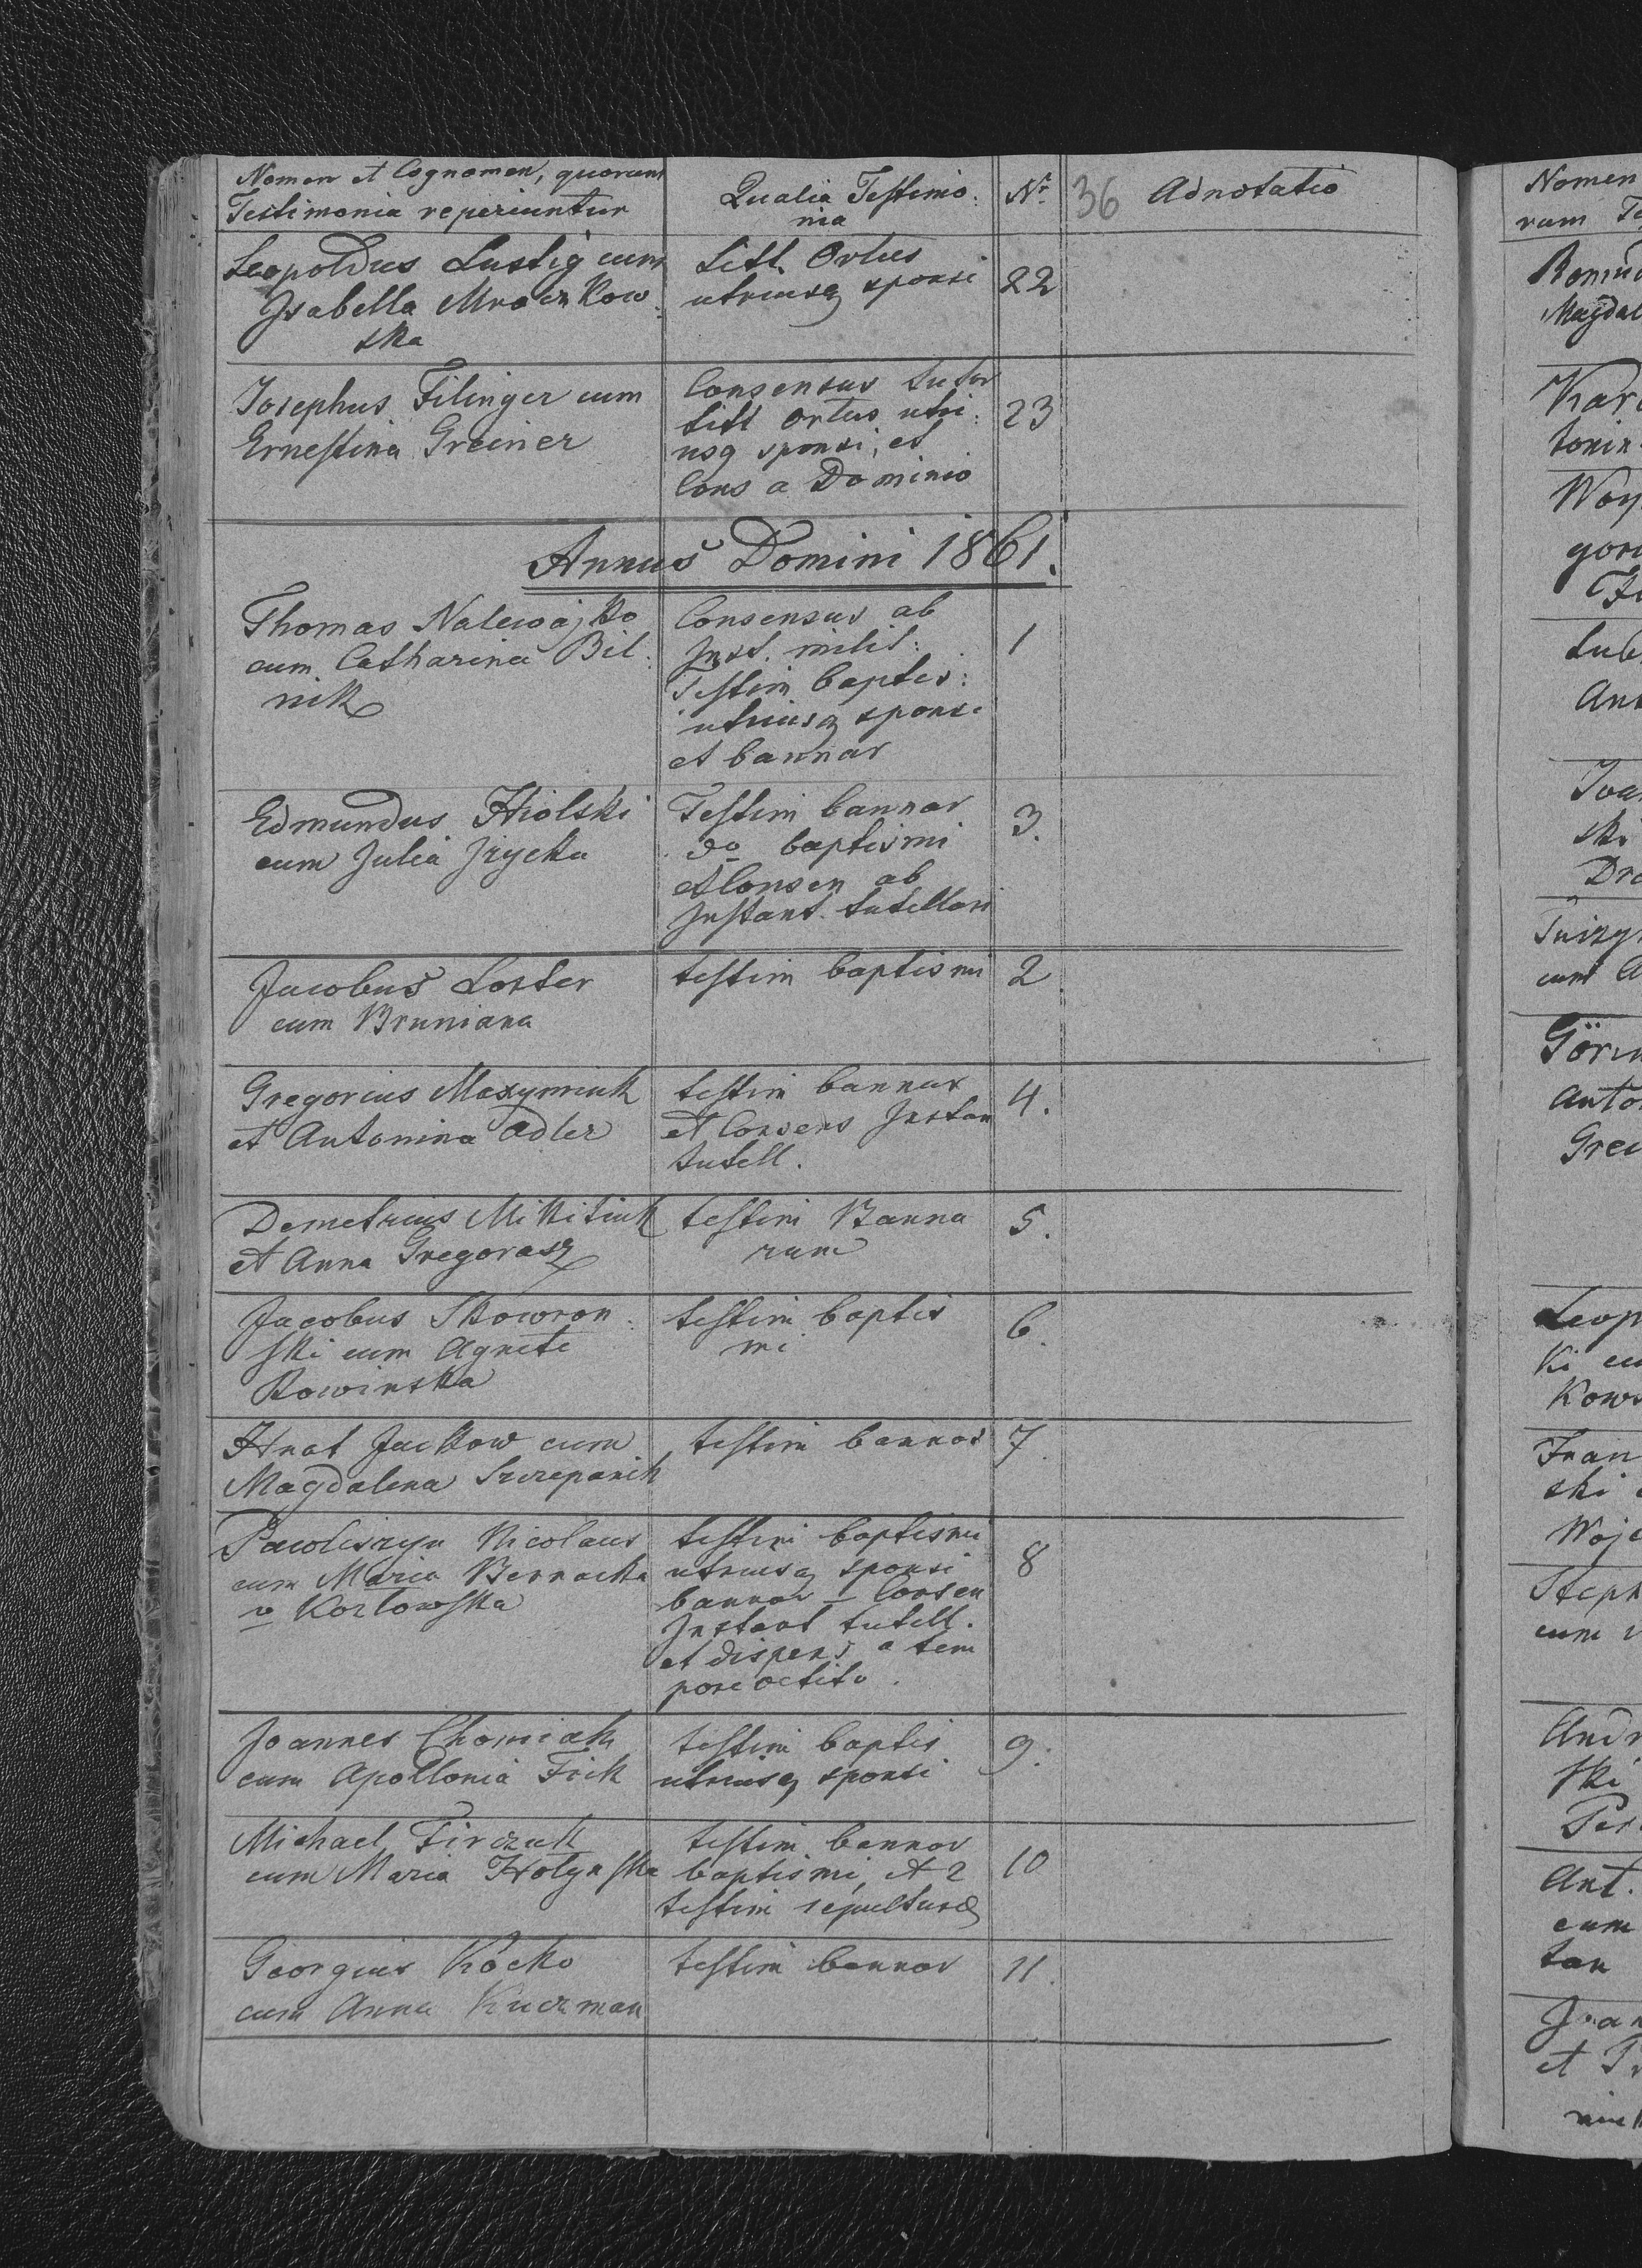 Nomen et Cognomen, quorum
Testimonia reperiuntur
Qualia Testimo:
nia
Nr.
36
Adnotatio
Leopoldus Lustig cum
Isabella Mroczkow:
ska
Litt. Ortus
utriusq sponsi
22
Josephus Filinger cum
Ernestina Greiner
Consensus tutor
Litt Ortus utri:
usq sponsi, et
Cons a Dominio
23
Annus Domini 1861.
Thomas Nalewajko
cum Catharina Bil:
nik
Consensus ab
Inst. milit:
Testim baptis:
utriusq sponsi
et bannar
1
Edmundus Hiolski
cum Julia
Testim bannor
do baptismi
et Consen ab
Instant. tutellari
3.
Jacobus Loster
cum Bruniana
testim baptismi
2.
Gregorius Maxymiuk
et Antonina Adler
testim bannor
et Consens Instan
tutell.
4.
Demetrius Mikitiuk
et Anna Gregorasz
testim Banna
rum
5.
Jacobus Skowron:
ski cum Agnete
Rowinska
testim baptis
mi
6.
Hnat Jackow cum
Magdalena Szczepanik
testim bannor
7.
Pawliszyn Nicolaus
cum Maria Bernacka
v Kozlowska
testim baptismi
utriusq sponsi
bannor – Consen
Instant tutell.
et dispens a tem
pore
8
Joannes Chomiak
cum Apollonia Frik
testim baptis
utriusq sponsi
9.
Michael Firczuk
cum Maria Holynska
testim bannor
baptismi, et 2
testim sepulturæ
10
Georgius Kocko
cum Anna Kuczman
testim bannor
11.
Nomen
rum
Magdal
tonin
gor
Ant
ski
cum
Anto
Grei
Leop
Kows
Fran
ski
Woje
Steph
cum
Andr
ski
Ant.
cum
tan
et